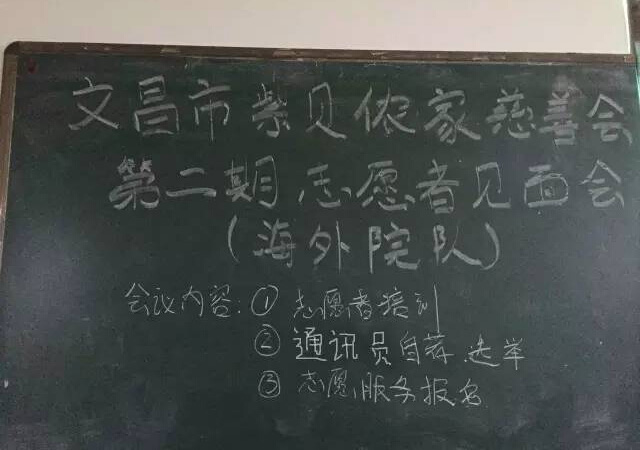 文昌市紫贝侬家慈善会
第二期志愿者见面会
(海外院队)
会议内容:①志愿者培训
②通讯员自荐、选举
③志愿服务报名